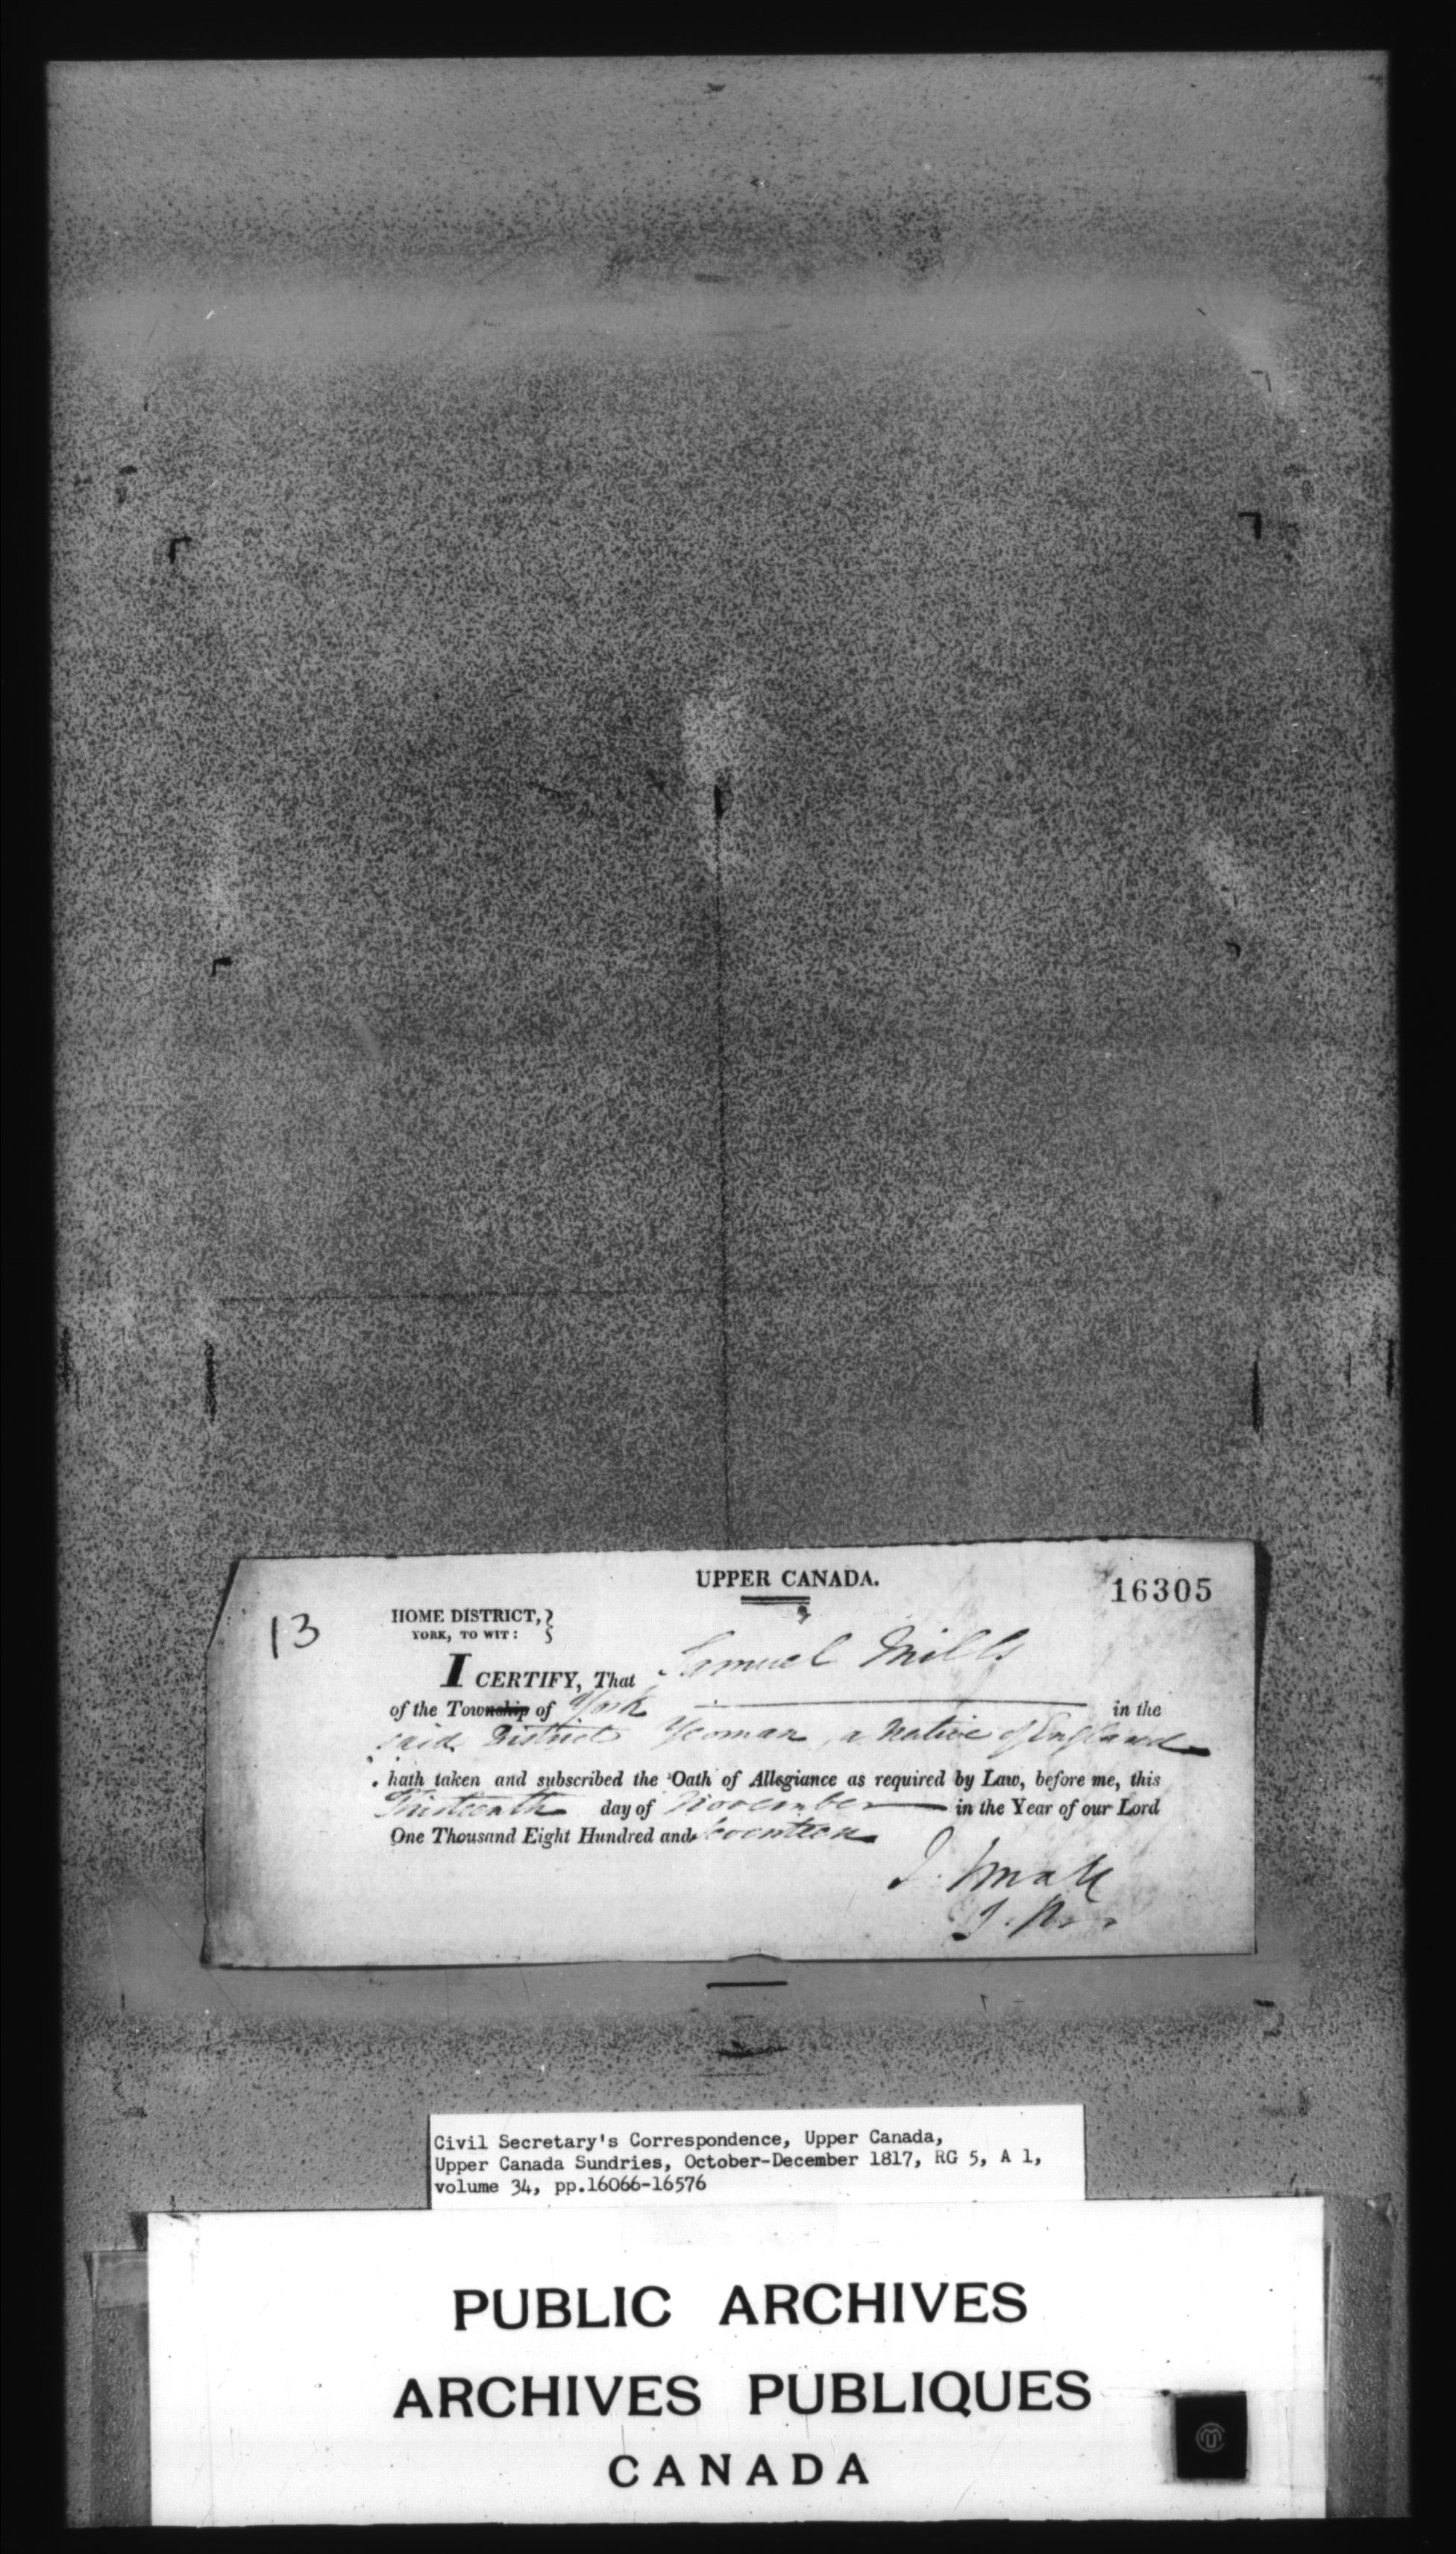 UPPER CANADA.
16305
13
HOME DISTRICT,
YORK, TO WIT:
I CERTIFY, That Samuel Mills
of the Township of York in the
said District Yeoman, a Native of England
hath taken and subscribed the Oath of Allegiance as required by Law, before me, this
Thirteenth day of November in the Year of our Lord
One Thousand Eight Hundred and Seventeen
J. Small
Civil Secretary's Correspondence, Upper Canada,
Upper Canada Sundries, October-December 1817, RG 5, A 1,
volume 34, pp.16066-16576
PUBLIC ARCHIVES
ARCHIVES PUBLIQUES
CANADA